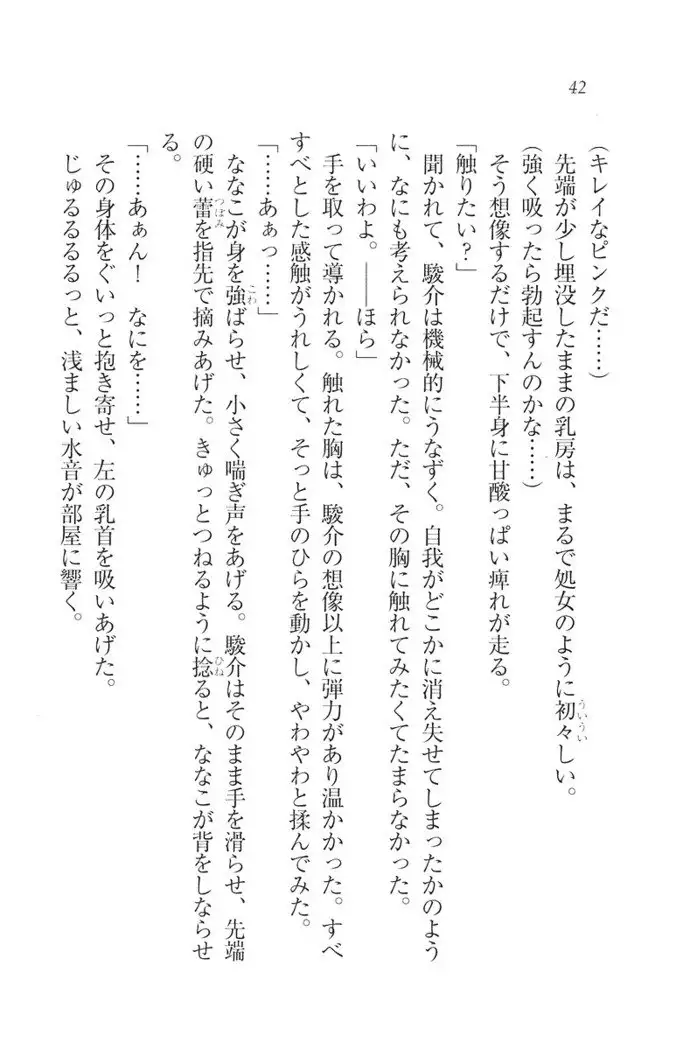 42
(キレイなピンクだ……)
先端が少し埋没したままの乳房は、まるで処女のように初々しい。
(強く吸ったら勃起すんのかな……)
そう想像するだけで、下半身に甘酸っぱい痺れが走る。
「触りたい?」
聞かれて、駿介は機械的にうなずく。自我がどこかに消え失せてしまったかのよう
に、なにも考えられなかった。ただ、その胸に触れてみたくてたまらなかった。
「いいわよ。――ほら」
手を取って導かれる。触れた胸は、駿介の想像以上に弾力があり温かかった。すべ
すべとした感触がうれしくて、そっと手のひらを動かし、やわやわと揉んでみた。
「……あぁっ……」
ななこが身を強ばらせ、小さく喘ぎ声をあげる。駿介はそのまま手を滑らせ、先端
の硬い蕾を指先で摘みあげた。きゅっとつねるように捻ると、ななこが背をしならせ
る。
「……あぁん! なにを……」
その身体をぐいっと抱き寄せ、左の乳首を吸いあげた。
じゅるるるるっと、浅ましい水音が部屋に響く。